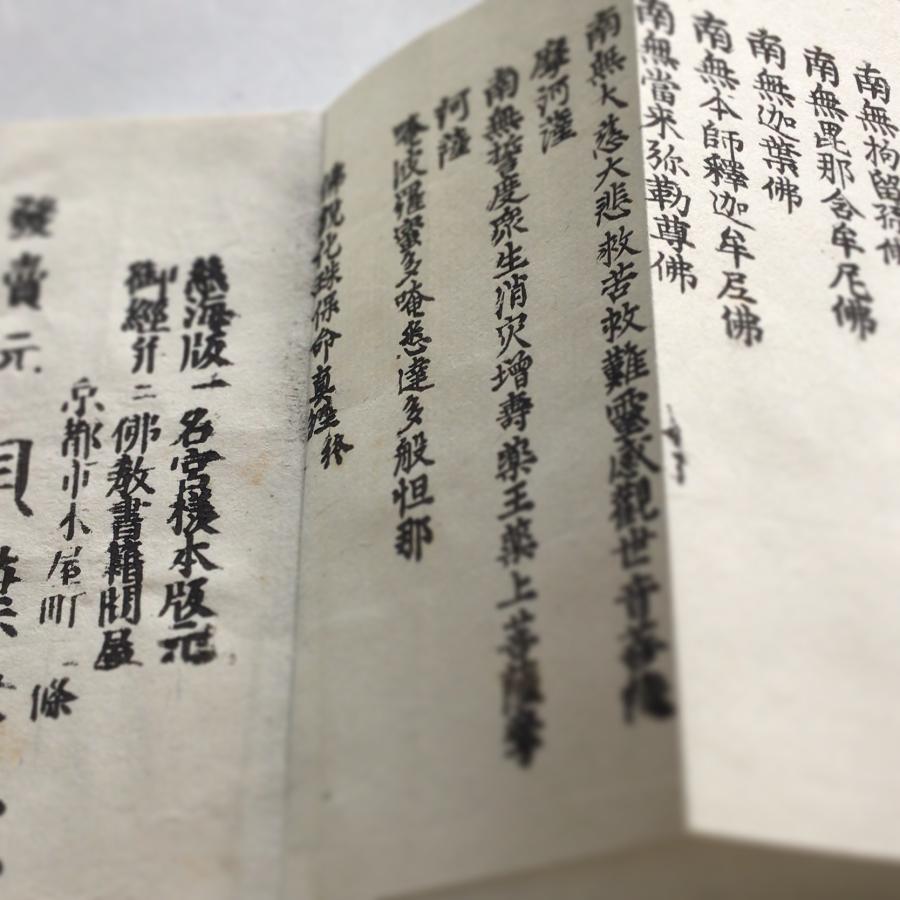 南無拘留孫佛
南無毘那含牟尼佛
南無迦葉佛
南無本師釋迦牟尼佛
南無當来弥勒尊佛
南無大慈大悲救苦救難靈感觀世音菩薩
摩訶薩
南無誓度衆生消灾增壽藥王藥上菩薩摩
訶薩
唵波羅蜜多唵悲達多般怛那
佛説化珠保命真經終
慈海版一名宮様本版元
御經并ニ佛教書籍問屋
京都市木屋町二條
發賣元
貝